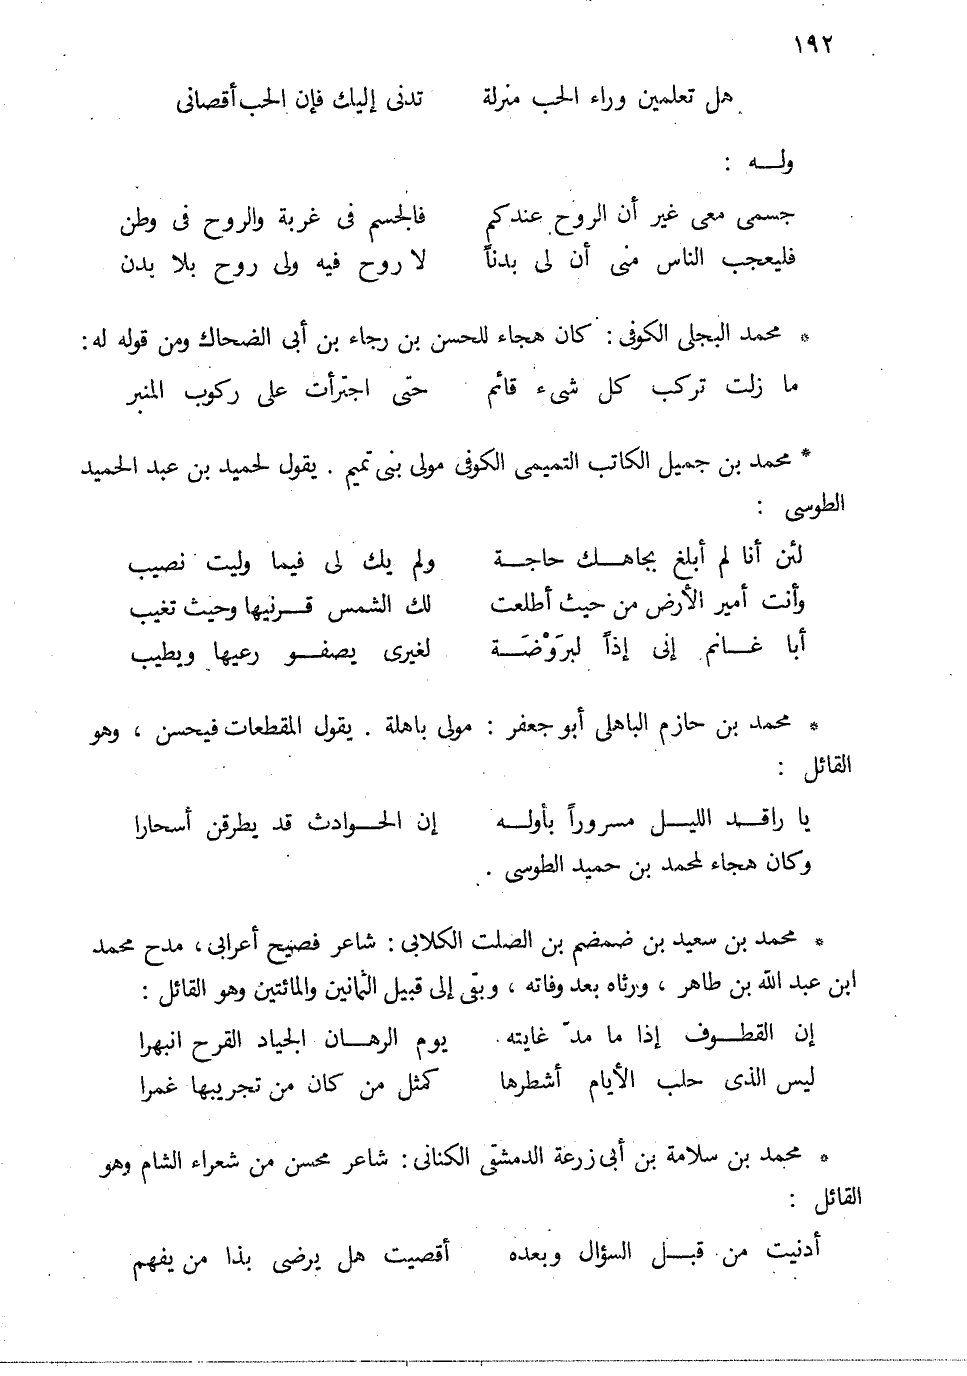 ١٩٢
هل تعلمين وراء الحب منزلة تدنى إليك فإن الحب أقصانى
ولـــه :
جسمى معى غير أن الروح عندكم فالجسم فى غربة والروح فى وطن
فليعجب الناس منى أن لى بدناً لا روح فيه ولى روح بلا بدن
* محمد البجلى الكوفى : كان هجاء للحسن بن رجاء بن أبى الضحاك ومن قوله له :
ما زلت تركب كل شىء قائم حتى اجترأت على ركوب المنبر
* محمد بن جميل الكاتب التميمى الكوفى مولى بنى تميم . يقول لحميد بن عبد الحميد
الطوسى :
لئن أنا لم أبلغ بجاهــك حاجــة ولم يك لى فيما وليت نصيب
وأنت أمير الأرض من حيث أطلعت لك الشمس قــرنيها وحيث تغيب
أبا غــانم إنى إذاً لبرَوْضَــة لغيرى يصفــو رعيها ويطيب
* محمد بن حازم الباهلى أبو جعفر : مولى باهلة . يقول المقطعات فيحسن ، وهو
القائل :
يا راقــد الليــل مسروراً بأولــه إن الحــوادث قد يطرقن أسحارا
وكان هجاء لمحمد بن حميد الطوسى .
* محمد بن سعيد بن ضمضم بن الصلت الكلابى : شاعر فصيح أعرابى ، مدح محمد
ابن عبد الله بن طاهر ، ورثاه بعد وفاته ، وبقى إلى قبيل الثمانين والمائتين وهو القائل :
إن القطــوف إذا ما مدّ غايته يوم الرهــان الجياد القرح انبهرا
ليس الذى حلب الأيام أشطرها كمثل من كان من تجريبها غمرا
* محمد بن سلامة بن أبى زرعة الدمشقى الكنانى : شاعر محسن من شعراء الشام وهو
القائل :
أدنيت من قبــل السؤال وبعده أقصيت هل يرضى بذا من يفهم